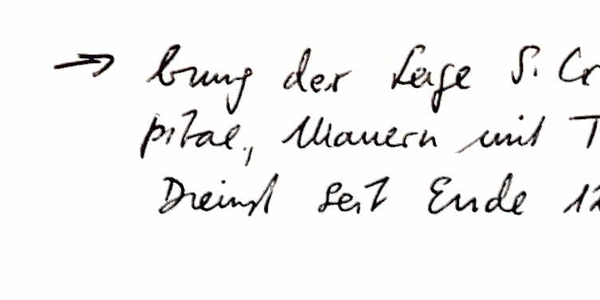 → bung der Lage S. Cr
pital, Mauern mit T
Dreinst seit Ende 12